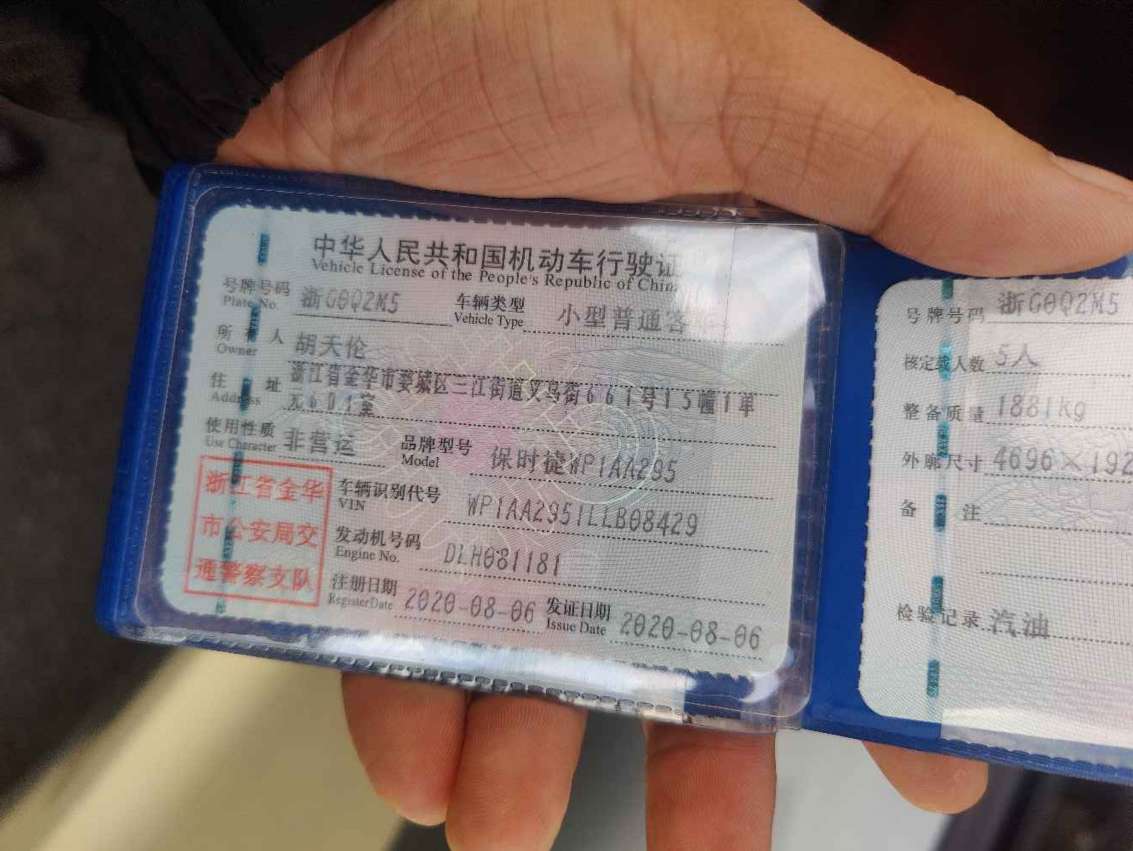 中华人民共和国机动车行驶证
Vehicle License of the People's Republic of China
号牌号码 浙G0Q2M5 车辆类型 小型普通客
Plate No. Vehicle Type
所 人 胡天伦
Owner
住 址 浙江省金华市婺城区三江街道义乌街661号15幢1单
Address 元601室
使用性质 非营运 品牌型号 保时捷WP1AA295
Use Character Model
浙江省金华
市公安局交
通警察支队
车辆识别代号 WP1AA2951LLB08429
VIN
发动机号码 DLH081181
Engine No.
注册日期 2020-08-06 发证日期 2020-08-06
Register Date Issue Date
号牌号码 浙G0Q2M5
核定载人数 5人
整备质量 1881Kg
外廓尺寸 4696×192
备 注
检验记录 汽油